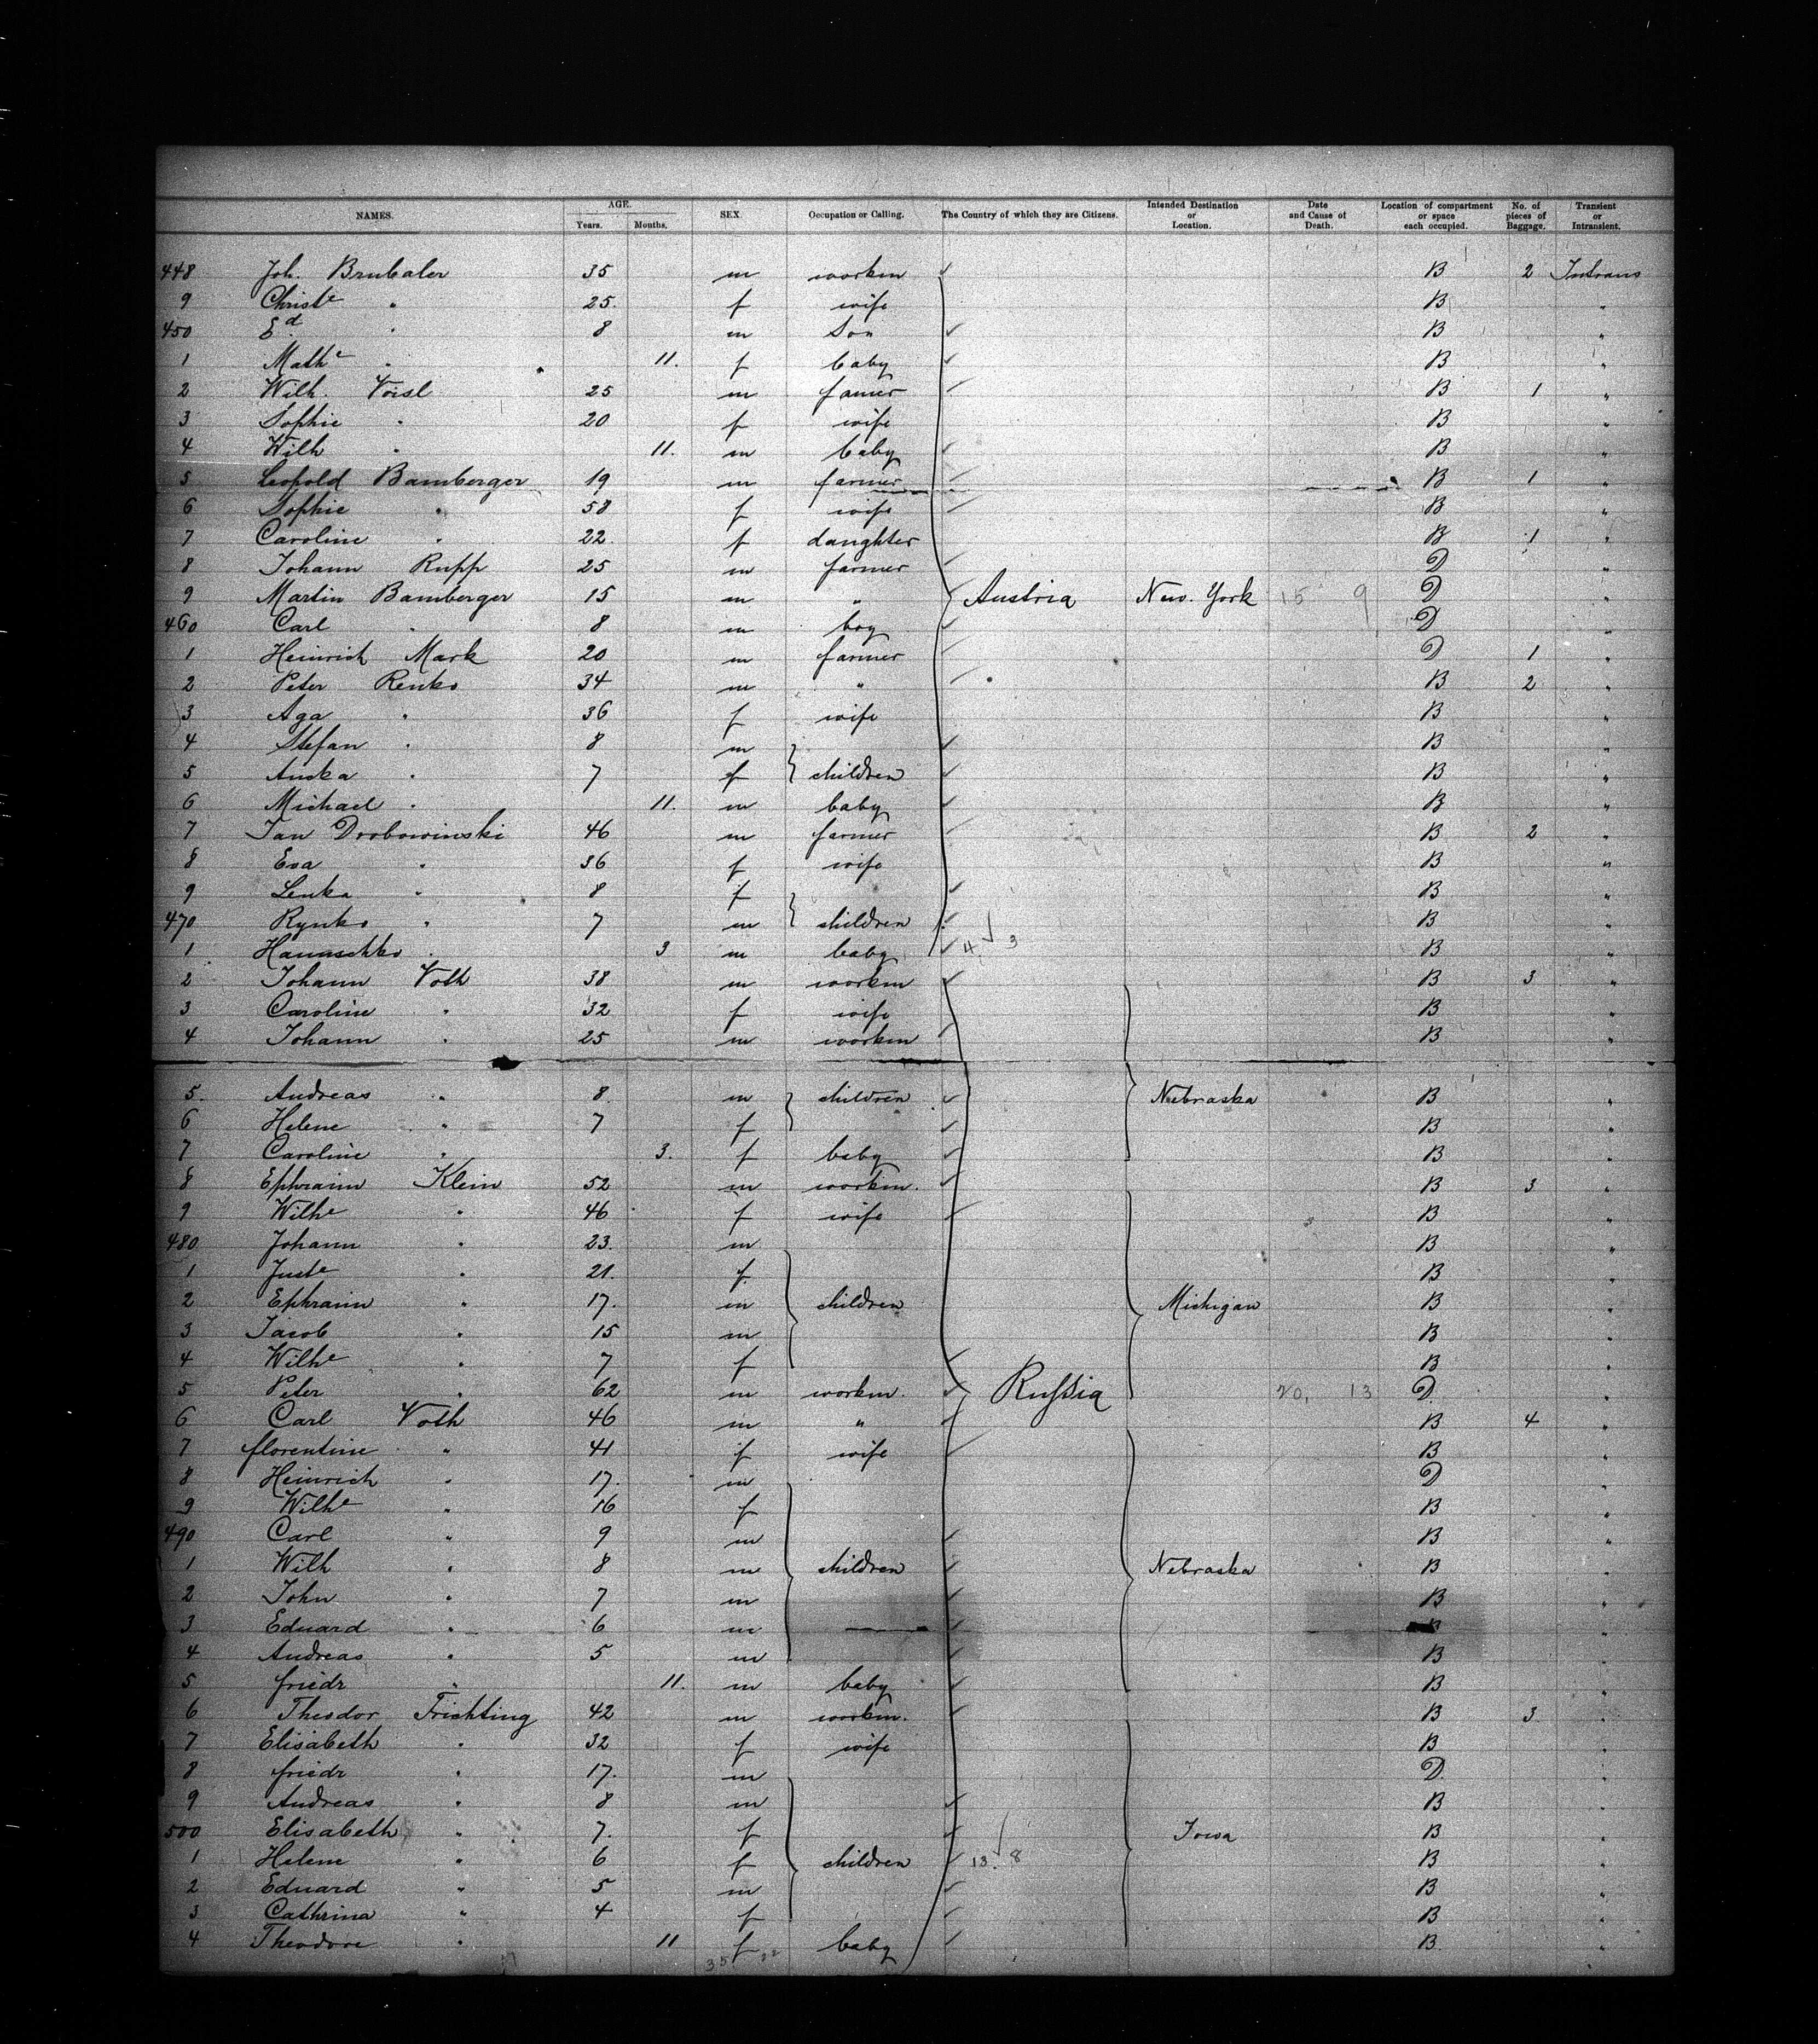 NAMES. AGE. Years. Months. SEX. Occupation or Calling. The Country of which they are Citizens. Intended Destination or Location. Date and Cause of Death. Location of compartment or space each occupied. No. of pieces of Baggage. Transient or Intransient.
448 Joh. Brubaler 35 m workm B 2 Intrans
9 Christe " 25 f wife B "
450 Ed " 8 m Son B "
1 Mathe " 11. f baby B "
2 Wilh. Voisl 25 m famer B 1 "
3 Sophie " 20 f wife B "
4 Wilh " 11. m baby B "
5 Leopold Bamberger 19 m farmer B 1 "
6 Sophie " 58 f wife B "
7 Caroline " 22 f daughter B 1 "
8 Johann Rupp 25 m farmer D "
9 Martin Bamberger 15 m " Austria New. York 15 9 D "
460 Carl " 8 m boy D "
1 Heinrich Mark 20 m farmer D 1 "
2 Peter Renko 34 m " B 2 "
3 Aga " 36 f wife B "
4 Stefan " 8 m B "
5 Anska " 7 f children B "
6 Michael " 11. m baby B "
7 Jan Drobowinski 46 m farmer B 2 "
8 Eva " 36 f wife B "
9 Lenka " 8 f B "
470 Rynko " 7 m children B "
1 Hanuschko " 3 m baby 4 3 B "
2 Johann Voth 38 m workm B 3 "
3 Caroline " 32 f wife B "
4 Johann " 25 m workm B "
5. Andreas " 8. m children Nebraska B "
6 Helene " 7 f B "
7 Caroline " 3. f baby B "
8 Ephraim Klein 52 m workm. B 3 "
9 Wilhe " 46 f wife B "
480 Johann " 23. m B "
1 Juste " 21. f B "
2 Ephraim " 17. m children Michigan B "
3 Jacob " 15 m B "
4 Wilhe " 7 f B "
5 Peter " 62 m workm. Russia 20, 13 D "
6 Carl Voth 46 m " B 4 "
7 florentine " 41 f wife B "
8 Heinrich " 17. m D "
9 Wilhe " 16 f B "
490 Carl " 9 m B "
1 Wilh " 8 m children Nebraska B "
2 John " 7 m B "
3 Eduard " 6 m B "
4 Andreas " 5 m B "
5 friedr " 11. m baby B "
6 Theodor Frichting 42 m workm. B 3 "
7 Elisabeth " 32 f wife B "
8 friedr " 17. m D "
9 Andreas " 8 m B "
500 Elisabeth " 7. f Iowa B "
1 Helene " 6 f children 13. 8 B "
2 Eduard " 5 m B "
3 Cathrina " 4 f B "
4 Theodore " 11 f baby B "
35 22